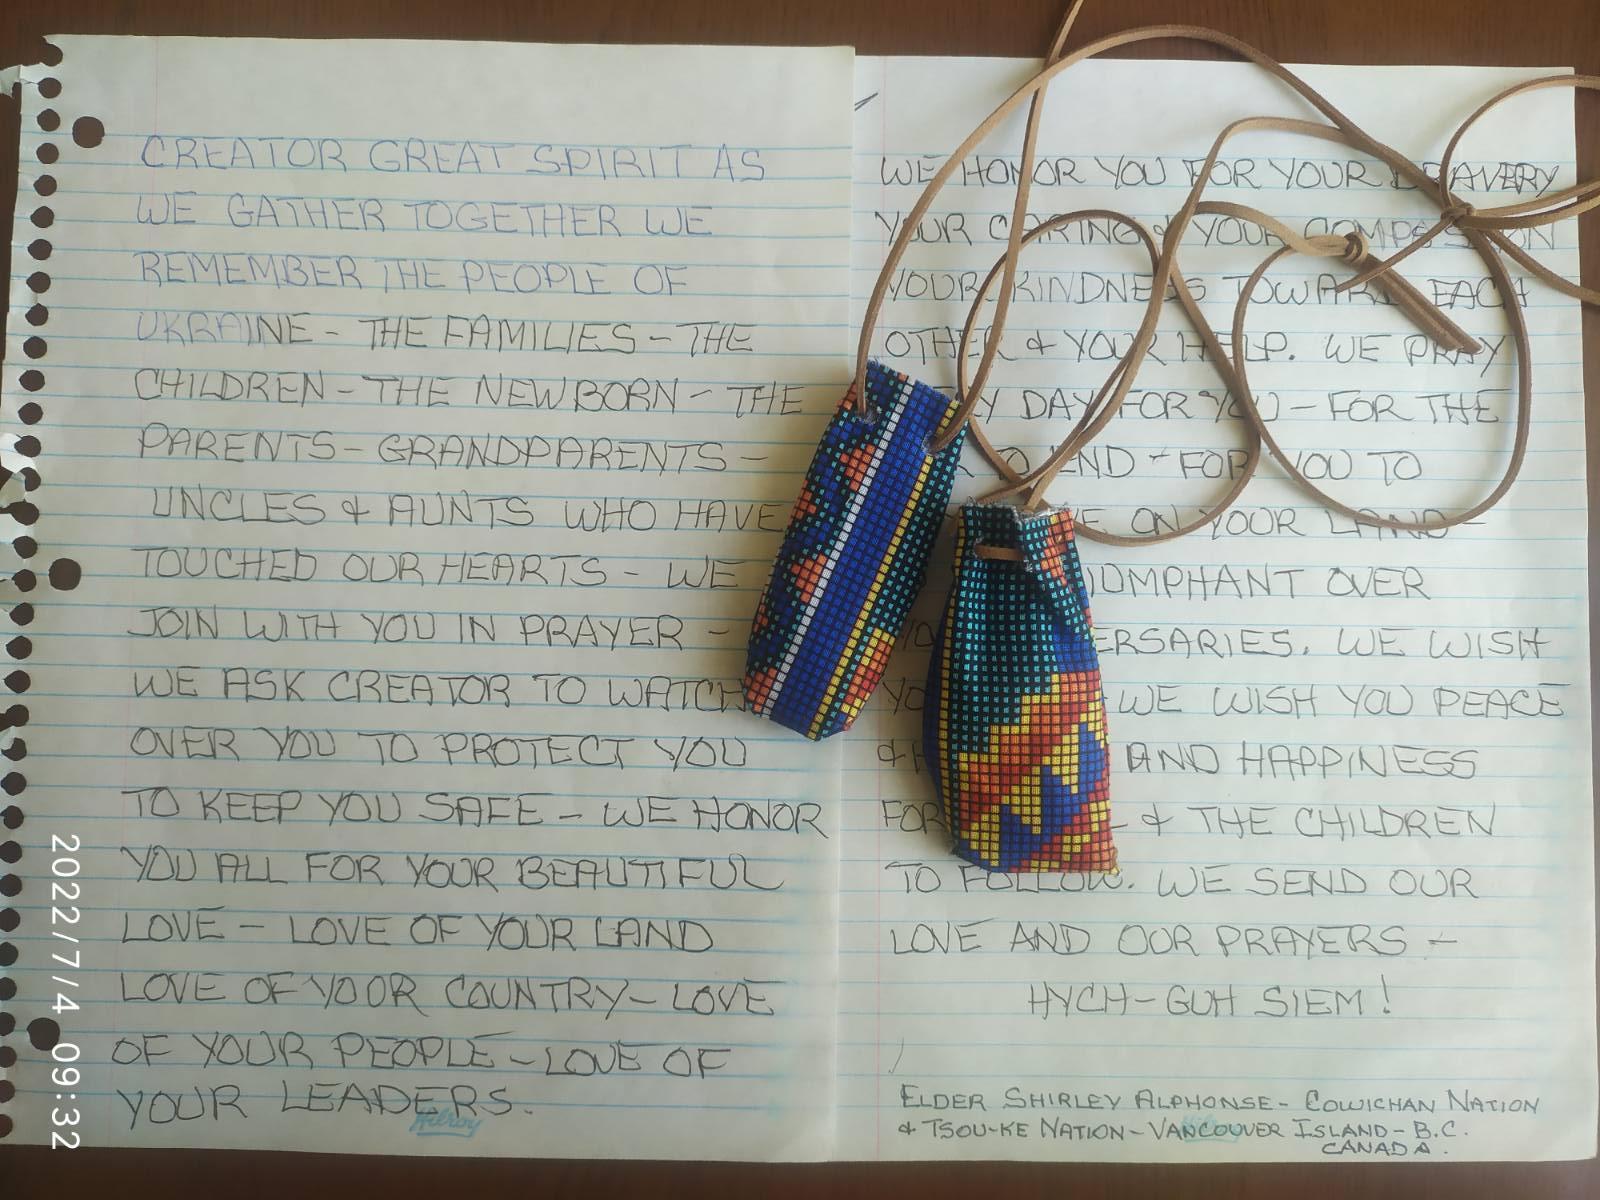 CREATOR GREAT SPIRIT AS
WE GATHER TOGETHER WE
REMEMBER THE PEOPLE OF
UKRAINE - THE FAMILIES - THE
CHILDREN - THE NEWBORN - THE
PARENTS - GRANDPARENTS -
UNCLES & AUNTS WHO HAVE
TOUCHED OUR HEARTS - WE
JOIN WITH YOU IN PRAYER -
WE ASK CREATOR TO WATCH
OVER YOU TO PROTECT YOU
TO KEEP YOU SAFE - WE HONOR
YOU ALL FOR YOUR BEAUTIFUL
LOVE - LOVE OF YOUR LAND
LOVE OF YOOR COUNTRY - LOVE
OF YOUR PEOPLE - LOVE OF
YOUR LEADERS.
Hilroy
WE HONOR YOU FOR YOUR BRAVERY
YOUR CARING & YOUR COMPASSION
YOUR KINDNESS TOWARD EACH
OTHER & YOUR HELP. WE PRAY
DAY FOR YOU - FOR THE
END - FOR YOU TO
ON YOUR LAND -
OVER
WE WISH
WE WISH YOU PEACE
& AND HAPPINESS
FOR & THE CHILDREN
TO FOLLOW. WE SEND OUR
LOVE AND OUR PRAYERS -
HYCH-GUH SIEM!
ELDER SHIRLEY ALPHONSE - COWICHAN NATION
& TSOU-KE NATION - VANCOUVER ISLAND - B.C.
CANADA.
2022/7/4 09:32